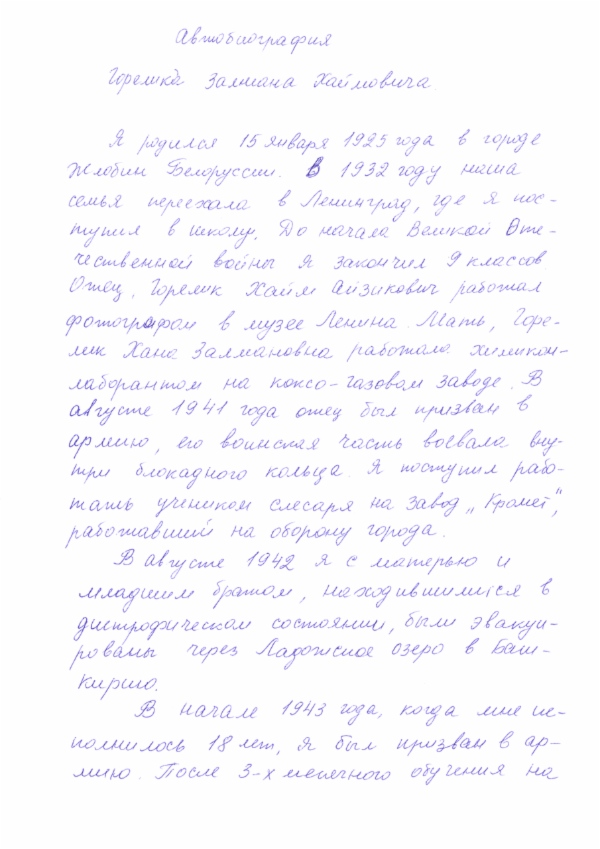 Автобиография
Горелика Залмана Хаймовича.
Я родился 15 января 1925 года в городе
Жлобин Белоруссии. В 1932 году наша
семья переехала в Ленинград, где я пос-
тупил в школу. До начала Великой Оте-
чественной войны я закончил 9 классов.
Отец, Горелик Хайм Айзикович работал
фотографом в музее Ленина. Мать, Горе-
лик Хана Залмановна работала химиком-
лаборантом на коксо-газовом заводе. В
августе 1941 года отец был призван в
армию, его воинская часть воевала вну-
три блокадного кольца. Я поступил рабо-
тать учеником слесаря на завод „Кромет",
работавший на оборону города.
В августе 1942 я с матерью и
младшим братом, находившимися в
дистрофическом состоянии, были эвакуи-
рованы через Ладожское озеро в Баш-
кирию.
В начале 1943 года, когда мне ис-
полнилось 18 лет, я был призван в ар-
мию. После 3-х месячного обучения на